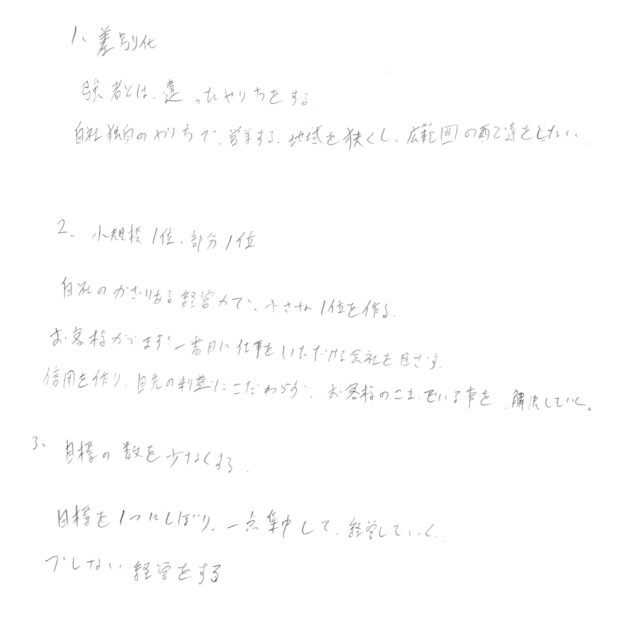 1、差別化
強者とは、違ったやり方をする
自社独自のやり方で、営業する、地域を狭くし、広範囲の配達をしない、
2、小規模1位、部分1位
自社のかぎりある経営力で、小さな1位を作る、
お客様がまず一番目に仕事をいただける会社を目ざす、
信用を作り、目先の利益にこだわらず、お客様のこまっている声を、解決していく。
3、目標の数を少なくする、
目標を1つにしぼり、一点集中して、経営していく、
ブレない経営をする